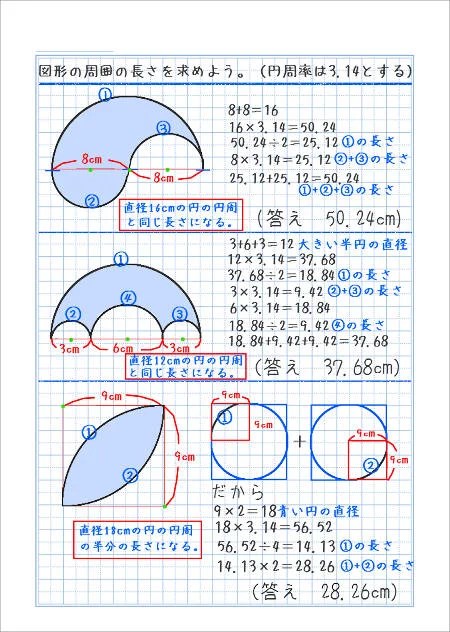 図形の周囲の長さを求めよう。(円周率は3.14とする)
①
③
8cm
8cm
②
8+8=16
16×3.14=50.24
50.24÷2=25.12 ①の長さ
8×3.14=25.12 ②+③の長さ
25.12+25.12=50.24
①+②+③の長さ
直径16cmの円の円周
と同じ長さになる。
(答え 50.24cm)
①
②
④
③
3cm
6cm
3cm
3+6+3=12 大きい半円の直径
12×3.14=37.68
37.68÷2=18.84 ①の長さ
3×3.14=9.42 ②+③の長さ
6×3.14=18.84
18.84÷2=9.42 ④の長さ
18.84+9.42+9.42=37.68
直径12cmの円の円周
と同じ長さになる。
(答え 37.68cm)
9cm
①
9cm
②
9cm
①
9cm
+
9cm
9cm
②
だから
9×2=18 青い円の直径
18×3.14=56.52
56.52÷4=14.13 ①の長さ
14.13×2=28.26 ①+②の長さ
直径18cmの円の円周
の半分の長さになる。
(答え 28.26cm)